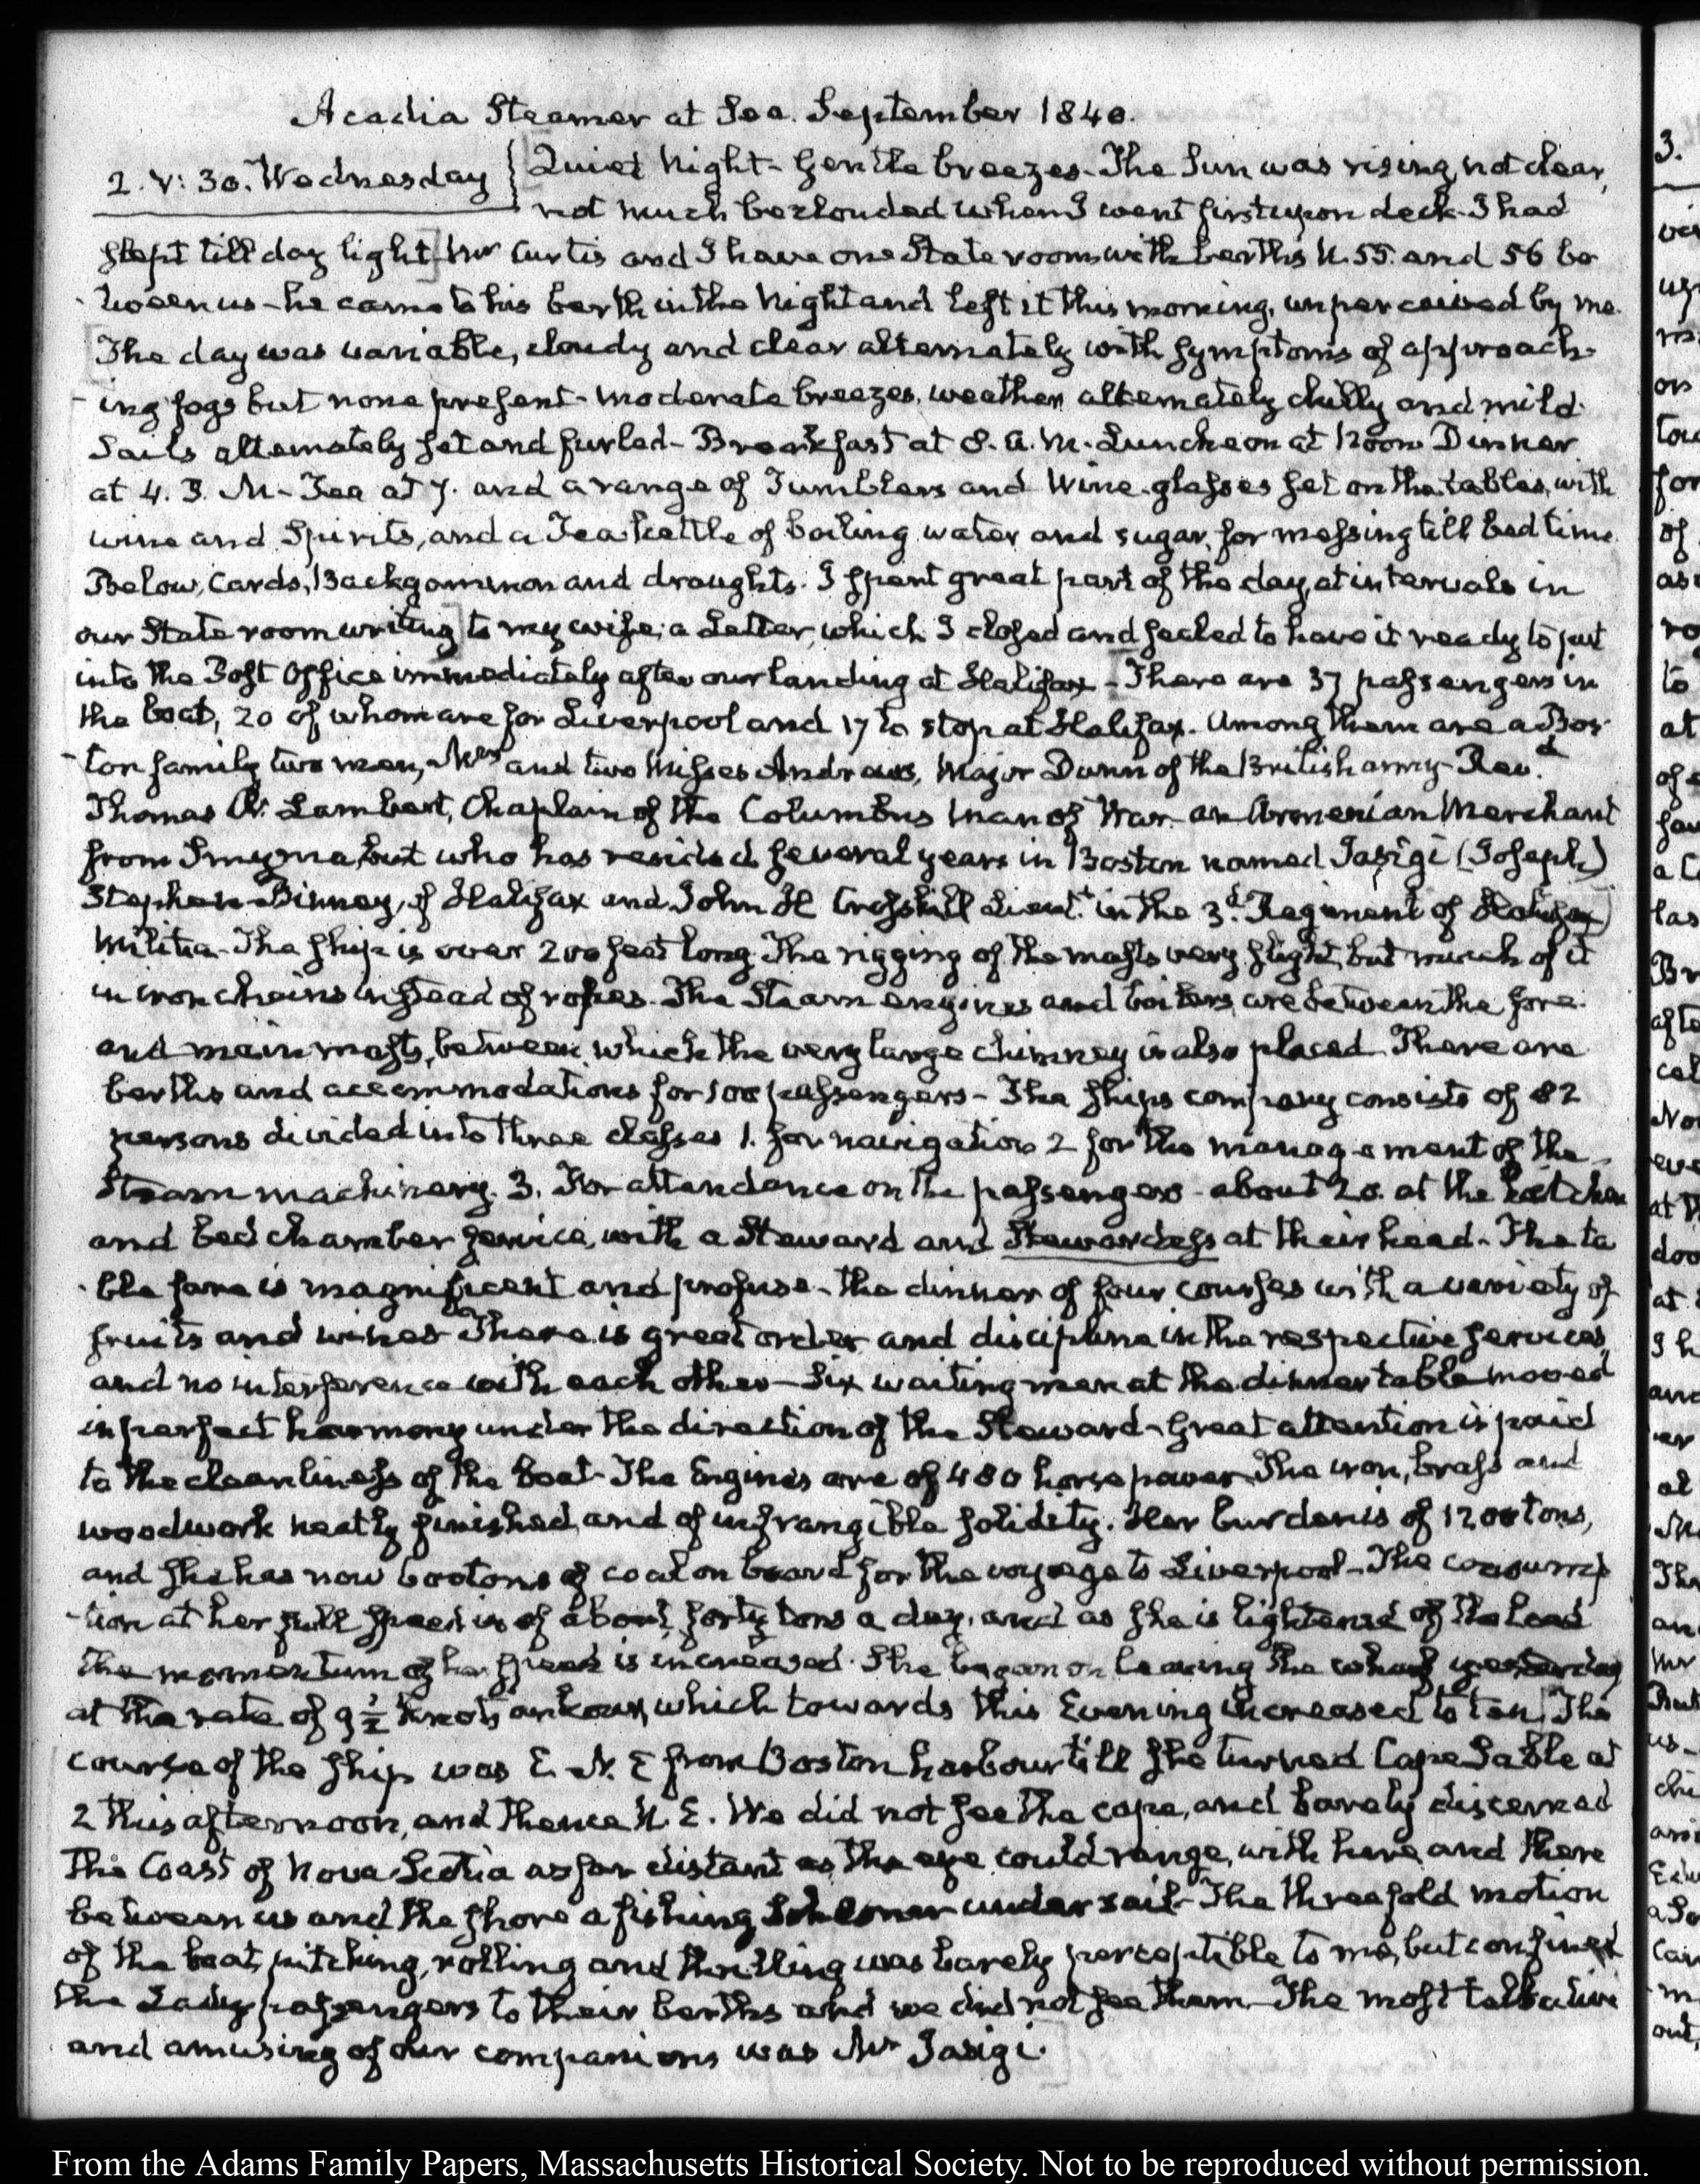 Acadia Steamer at Sea. September 1840.
2. V: 30. Wednesday
Quiet Night - Gentle breezes - The Sun was rising, not clear,
not much beclouded when I went first upon deck - I had
slept till day light - Mr Curtis and I have one State room with berths N. 55. and 56 be
tween us - he came to his berth in the Night and left it this morning, unperceived by me.
The day was variable, cloudy and clear alternately with symptoms of approach-
ing fogs but none present - moderate breezes, weather alternately chilly and mild.
Sails alternately set and furled - Breakfast at 8. A. M. Luncheon at Noon Dinner
at 4. P. M - Tea at 7. and a range of Tumblers and Wine-glasses set on the tables, with
wine and Spirits, and a Tea kettle of boiling water and sugar, for messing till bed time
Below, Cards, Backgammon and draughts. I spent great part of the day, at intervals in
our State room writing to my wife, a Letter, which I closed and sealed to have it ready to put
into the Post Office immediately after our landing at Halifax - There are 37 passengers in
the boat, 20 of whom are for Liverpool and 17 to stop at Halifax. Among them are a Bos-
ton family two men, Mrs and two Misses Andrews, Major Dunn of the British army - Revd.
Thomas R. Lambert, Chaplain of the Columbus man of War - an Armenian Merchant
from Smyrna, but who has resided several years in Boston named Jasigi (Joseph)
Stephen Binney, of Halifax and John H Crosskill Lieut. in the 3d. Regiment of Halifax
Militia - The ship is over 200 feet long. The rigging of the masts very slight, but much of it
in iron chains instead of ropes. The Steam engines and boilers, are between the fore
and main masts, between which the very large chimney is also placed. There are
berths and accommodations for 100 passengers - The ships company consists of 82
persons divided into three classes 1. for navigation 2 for the management of the
Steam machinery. 3. For attendance on the passengers - about 20. at the kitchen
and bed chamber service, with a Steward and Stewardess at their head - The ta
ble fare is magnificent and profuse - the dinner of four courses with a variety of
fruits and wines There is great order and discipline in the respective services,
and no interference with each other - Six waiting men at the dinner table moved
in perfect harmony under the direction of the Steward - Great attention is paid
to the cleanliness of the boat - The Engines are of 480 horse power The iron, brass and
woodwork neatly finished, and of infrangible solidity. Her burden is of 1200 tons,
and she has now 600 tons of coal on board for the voyage to Liverpool - The consump
tion at her full speed is of about forty tons a day, and as she is lightened of the load
the momentum of her speed is increased. She began on leaving the wharf yesterday
at the rate of 9½ knots an hour, which towards this Evening increased to ten The
course of the ship was E. N. E from Boston harbour till she turned Cape Sable at
2 this afternoon, and thence N. E. We did not see the cape, and barely discerned
the Coast of Nova Scotia as far distant as the eye could range, with here and there
between us and the shore a fishing Schooner under sail - The threefold motion
of the boat, pitching, rolling and thrilling was barely perceptible to me, but confined
the Lady passengers to their berths and we did not see them - The most talkative
and amusing of our companions was Mr Jasigi.
From the Adams Family Papers, Massachusetts Historical Society. Not to be reproduced without permission.